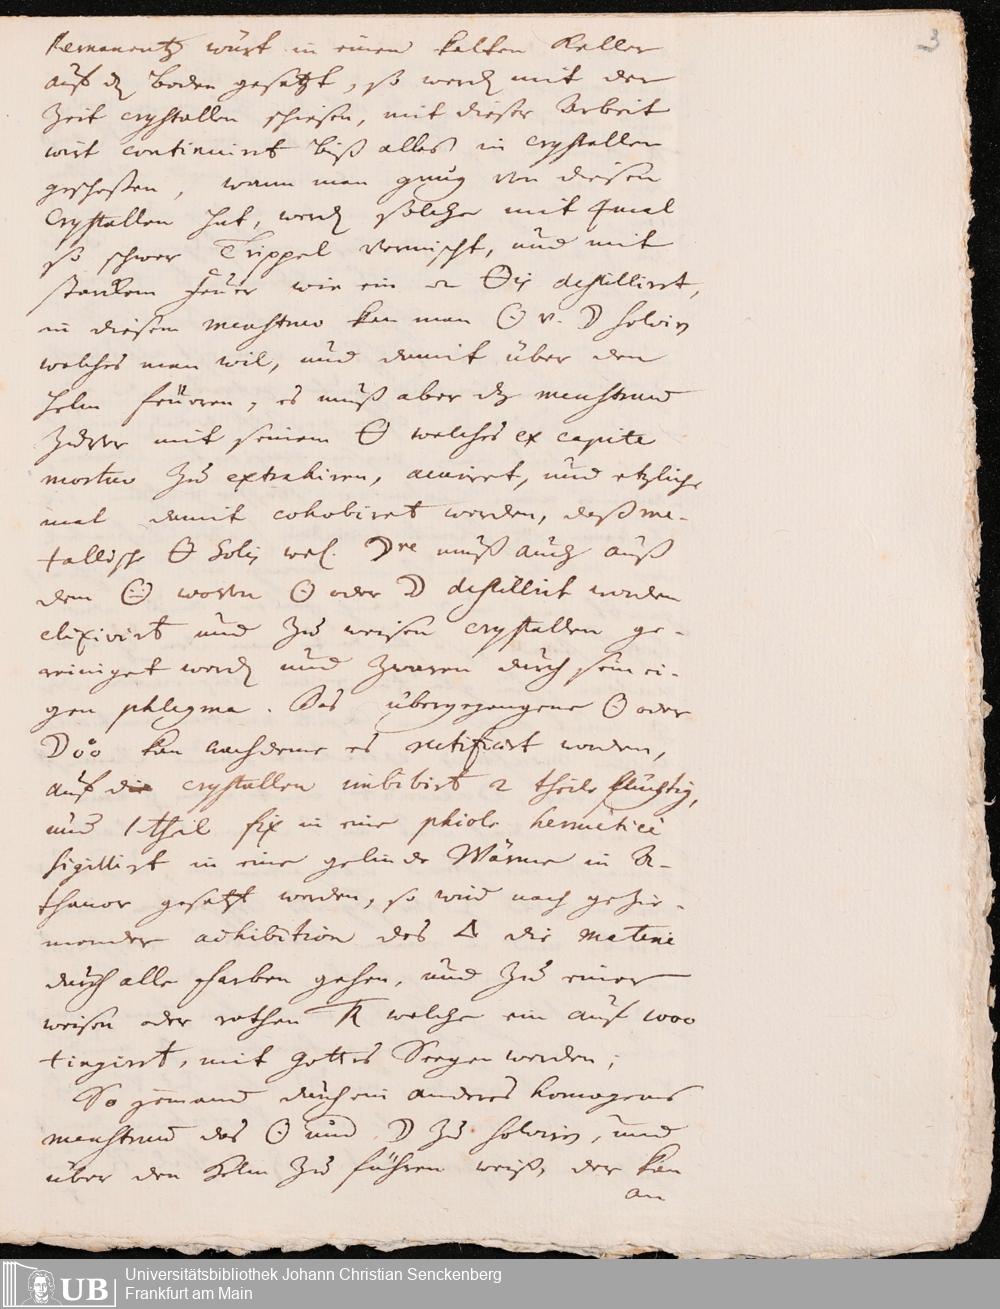 3
Remanentz wirst in einen kalten Keller
auf dz boden gesetzt, so werdz mit der
Zeit crystallen schiesen, mit dieser Arbeit
wirt continuirt biß alles in crystallen
geschoßen, wann man gnug von diesen
Crystallen hat, werdz solche mit 4mal
so schwer Trippel vermischt, und mit
starkem feüer wie ein destillirt,
in diesem menstruo kan man ☉ v. ☽ solvirn
welches man wil, und damit über den
helm feüren, es muß aber dz menstruum
zuvor mit seinem 🜔 welches ex capite
mortuo zu extrahiren, acuiret, und etzliche
mal damit cohobiret werden, daß me-
tallische 🜔 Solis vel ☽re muß auch auß
dem worvon ☉ oder ☽ destillirt worden
elixivirt und zu weisen crystallen ge-
reiniget werdz und zwaren durch sein ei-
gen phlegma. Das übergegangene ☉ oder
☽ kan nachdeme es rectificirt worden,
auf die crystallen imbibirt 2 theile flüchtig,
und 1 theil fix in eine phiole hermeticè
sigillirt in eine gelinde Wärme in A-
thanor gesetzt werden, so wird nach gezie-
mender adhibition des 🜂 die materie
durch alle farben gehen, und zu einer
weisen oder rothen welche ein auf 1000
tingirt, mit Gottes Seegen werden;
So jemand durch ein anderes homogens
menstruum das ☉ und ☽ zu solvirn, und
über den Helm zu führen weiß, der kan
an
UB
Universitätsbibliothek Johann Christian Senckenberg
Frankfurt am Main